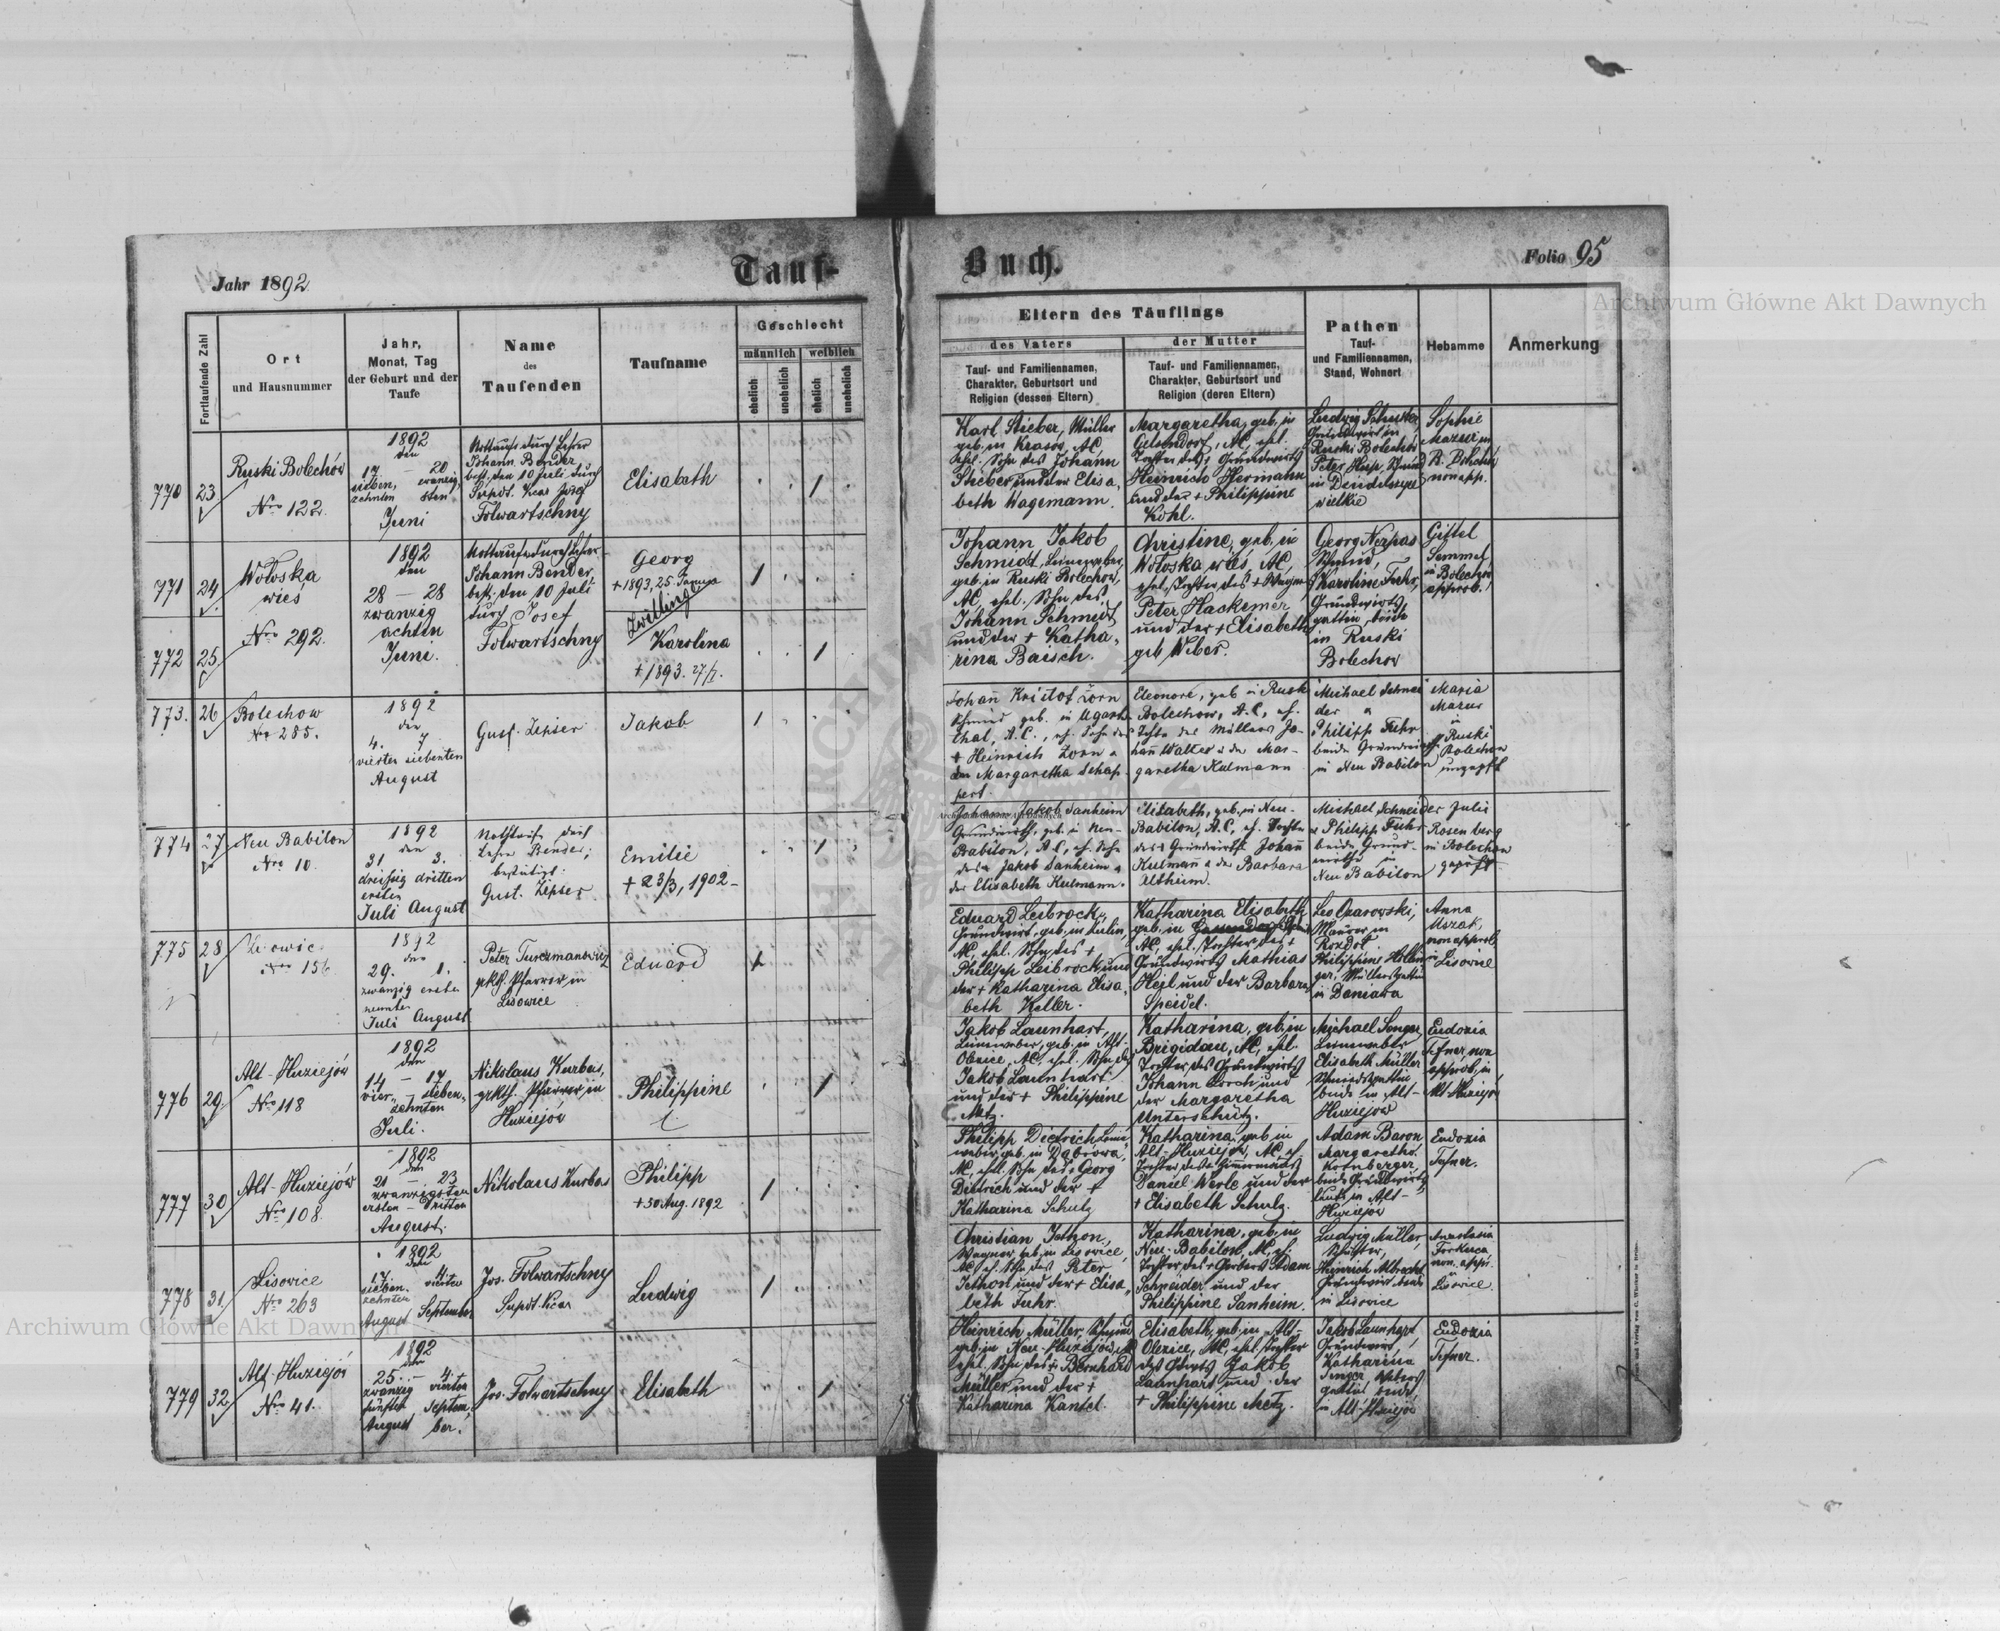 Jahr 1892
Tauf-
Buch.
Folio 95
Archiwum Główne Akt Dawnych
Fortlaufende Zahl
Ort
und Hausnummer
Jahr,
Monat, Tag
der Geburt und der
Taufe
Name
des
Taufenden
Taufname
Geschlecht
männlich
weiblich
ehelich
unehelich
ehelich
unehelich
Eltern des Täuflings
des Vaters
Tauf- und Familiennamen,
Charakter, Geburtsort und
Religion (dessen Eltern)
der Mutter
Tauf- und Familiennamen,
Charakter, Geburtsort und
Religion (deren Eltern)
Pathen
Tauf-
und Familiennamen,
Stand, Wohnort
Hebamme
Anmerkung
770
23
Ruski Bolechów
Nro 122.
1892
den
17 — 20
sieben, zwanzig,
zehnten sten
Juni
Nottaufe durch Lehrer
Johann Bender
best. den 10 Juli durch
Supdt. Vicar Josef
Folwartschny
Elisabeth
Karl Stieber, Müller
geb. in Krasow, AC,
ehel. Sohn des Johann
Stieber und der Elisa-
beth Wagemann.
Margaretha, geb. in
Gelsendorf, AC, ehel.
Tochter des Grundwirts
Heinrich Hermann
und der + Philippine
Kohl.
Ludwig
Grundwirt in
Ruski Bolechów,
Peter
in
wielkie
Sophie
Mazur in
R. Bolechów
non app.
771
24
Wołoska
wieś
Nro 292.
1892
den
28 — 28
zwanzig
achten
Juni.
Nottaufe durch Lehrer
Johann Bender,
best. den 10 Juli
durch Josef
Folwartschny
Georg
+ 1893, 25. Januar
Zwillinge
772
25
Karolina
+ 1893. 27/I.
Johann Jakob
Schmidt, Leineweber,
geb. in Ruski Bolechow,
AC, ehel. Sohn des
Johann Schmidt
und der + Katha-
rina Baisch.
Christine, geb. in
Wołoska wieś, AC,
ehel. Tochter des + Wagn.
Peter Hackemer
und der + Elisabeth
geb Weber.
Georg
Schmied,
Karoline Fuhr,
Grundwirts
gattin, beide
in Ruski
Bolechow
Gittel
Semmel
in Bolechow
approb.
773.
26
Bolechow
Nro 285.
1892
den
4. 7
vierten siebenten
August
Gust. Zipser
Jakob
Johann Kristof Zorn
Schmied geb. in Ugarts-
thal, A.C., eh. Sohn des
+ Heinrich Zorn u
der Margaretha Schap-
pert.
Eleonore, geb in Rusk
Bolechow, A.C., eh.
Tochter des Müllers Jo-
hann Walter u der Mar-
garetha Kulmann
Michael Schnei
der u
Philipp Fuhr
beide Grundwirthe
in Neu Babilon
Maria
Mazur
in
Ruski
Bolechow
ungeprft
774
27
Neu Babilon
Nro 10.
1892
den
31 3.
dreißig dritten
ersten
Juli August
Nothtaufe durch
Lehrer Bender;
bestätigt:
Gust. Zipser
Emilie
+ 23/3, 1902 –
Johann Jakob Sanheim
Grundwirth, geb. in Neu-
Babilon, A.C., eh. Sohn
des Jakob Sanheim u
der Elisabeth Kulmann.
Elisabeth, geb. in Neu-
Babilon, A.C., eh. Tochter
des Grundwirths Johann
Kulmann u der Barbara
Altheim.
Michael Schneider
u Philipp Fuhr
beide Grund-
wirthe in
Neu Babilon
Julie
Rosenberg
in Bolechow
geprft
775
28
Nro 156
1892
den
29. 1.
zwanzig ersten
neunten
Juli August
Peter Turczmanowicz
grkth. Pfarrer in
Lisowice
Eduard
Eduard Leibrock,
Grundwirt, geb. in
AC, ehel. Sohn des +
Philipp Leibrock und
der + Katharina Elisa-
beth Keller.
Katharina Elisabeth
geb. in
AC, ehel. Tochter des +
Grundwirts Mathias
Heil und der Barbara
Speidel.
Leo Ozarowski,
Maurer in
Rozdoł.
Philippine
Müllers gattin
in
Anna
non approb.
in Lisowice
776
29
Alt-Huziejów
Nro 118
1892
den
14 — 17
vier, sieben,
zehnten
Juli.
Nikolaus Kurbas,
grkth. Pfarrer in
Huziejów
Philippine
Jakob Launhart,
Leineweber, geb. in Alt-
Olexice, AC, ehel. Sohn des
Jakob Launhart
und der + Philippine
Metz.
Katharina, geb. in
Brigidau, AC, ehel.
Tochter des Grundwirts
Johann Lorch und
der Margaretha
Unterschütz.
Michael Senger
Leineweber
Elisabeth Müller
Schmiedsgattin
beide in Alt-
Huziejów
Eudoxia
Tefner non
approb., in
Alt-Huziejów
777
30
Alt-Huziejów
Nro 108.
1892
den
21 — 23
zwanzigsten
ersten — dritten
August.
Nikolaus Kurbas
Philipp
+ 30 Aug. 1892
Philipp Dietrich, Leine-
weber, geb. in Dąbrowa,
AC, ehel. Sohn des + Georg
Dietrich und der +
Katharina Schutz
Katharina, geb. in
Alt-Huziejów, AC, eh.
Tochter des + Zimmermanns
Daniel Werle und der
+ Elisabeth Schulz.
Adam Baron
Margaretha
Kornberger,
beide Grundwirts
leute in Alt-
Huziejów
Eudoxia
Tefner.
778
31
Lisowice
Nro 263
1892
den
17 — 4.
sieben- vierten
zehnten
August September
Jos. Folwartschny
Supdt. Vicar
Ludwig
Christian Jethon,
Wagner, geb. in Lisowice,
AC, eh. Sohn des Peter
Jethon und der + Elisa-
beth Fuhr.
Katharina, geb. in
Neu-Babilon, AC, eh.
Tochter des + Gerbers Adam
Schneider und der
Philippine Sanheim.
Ludwig Müller,
Heinrich Albrecht
Grundwirt, beide
in Lisowice
Anastasia
non. appr.
in
Lisowice.
779
32
Alt-Huziejów
Nro 41.
1892
den
25. — 4.
zwanzig vierten
fünften Septem-
August ber.
Jos. Folwartschny
Elisabeth
Heinrich Müller, Schmied
geb. in Neu-Huziejów, AC
ehel. Sohn des + Bernhard
Müller und der +
Katharina Kantel.
Elisabeth, geb. in Alt-
Olexice, AC, ehel. Tochter
des Grwts Jakob
Launhart und der
+ Philippine Metz.
Jakob Launhart,
Grundwirt,
Katharina
Senger Webers
gattin beide
in Alt-Huziejów
Eudoxia
Tefner.
Archiwum Główne Akt Dawnych